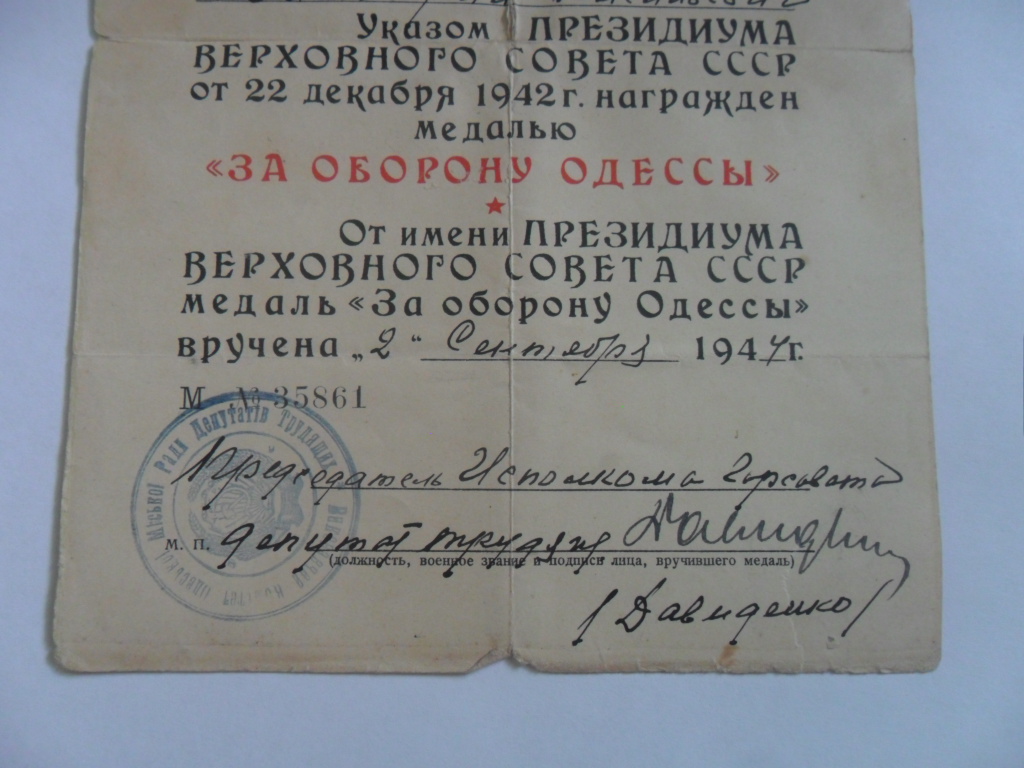 Указом ПРЕЗИДИУМА
ВЕРХОВНОГО СОВЕТА СССР
от 22 декабря 1942 г. награжден
медалью
«ЗА ОБОРОНУ ОДЕССЫ»
От имени ПРЕЗИДИУМА
ВЕРХОВНОГО СОВЕТА СССР
медаль «За оборону Одессы»
вручена „2“ Сентября 1944 г.
М № 35861
Міської Ради Депутатів Трудящих
Председатель Исполкома Горсовета
М. П. депутат трудящ.
(должность, военное звание и подпись лица, вручившего медаль)
/Давиденко/